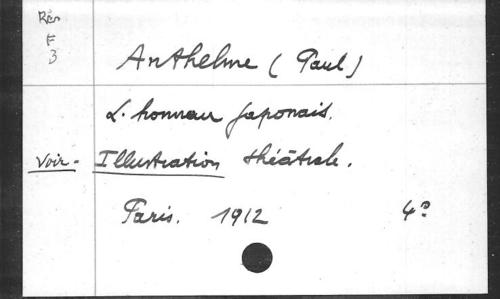 Rés
F
3
Anthelme (Paul)
L'honneur japonais.
Voir - Illustration théâtrale.
Paris. 1912 4º